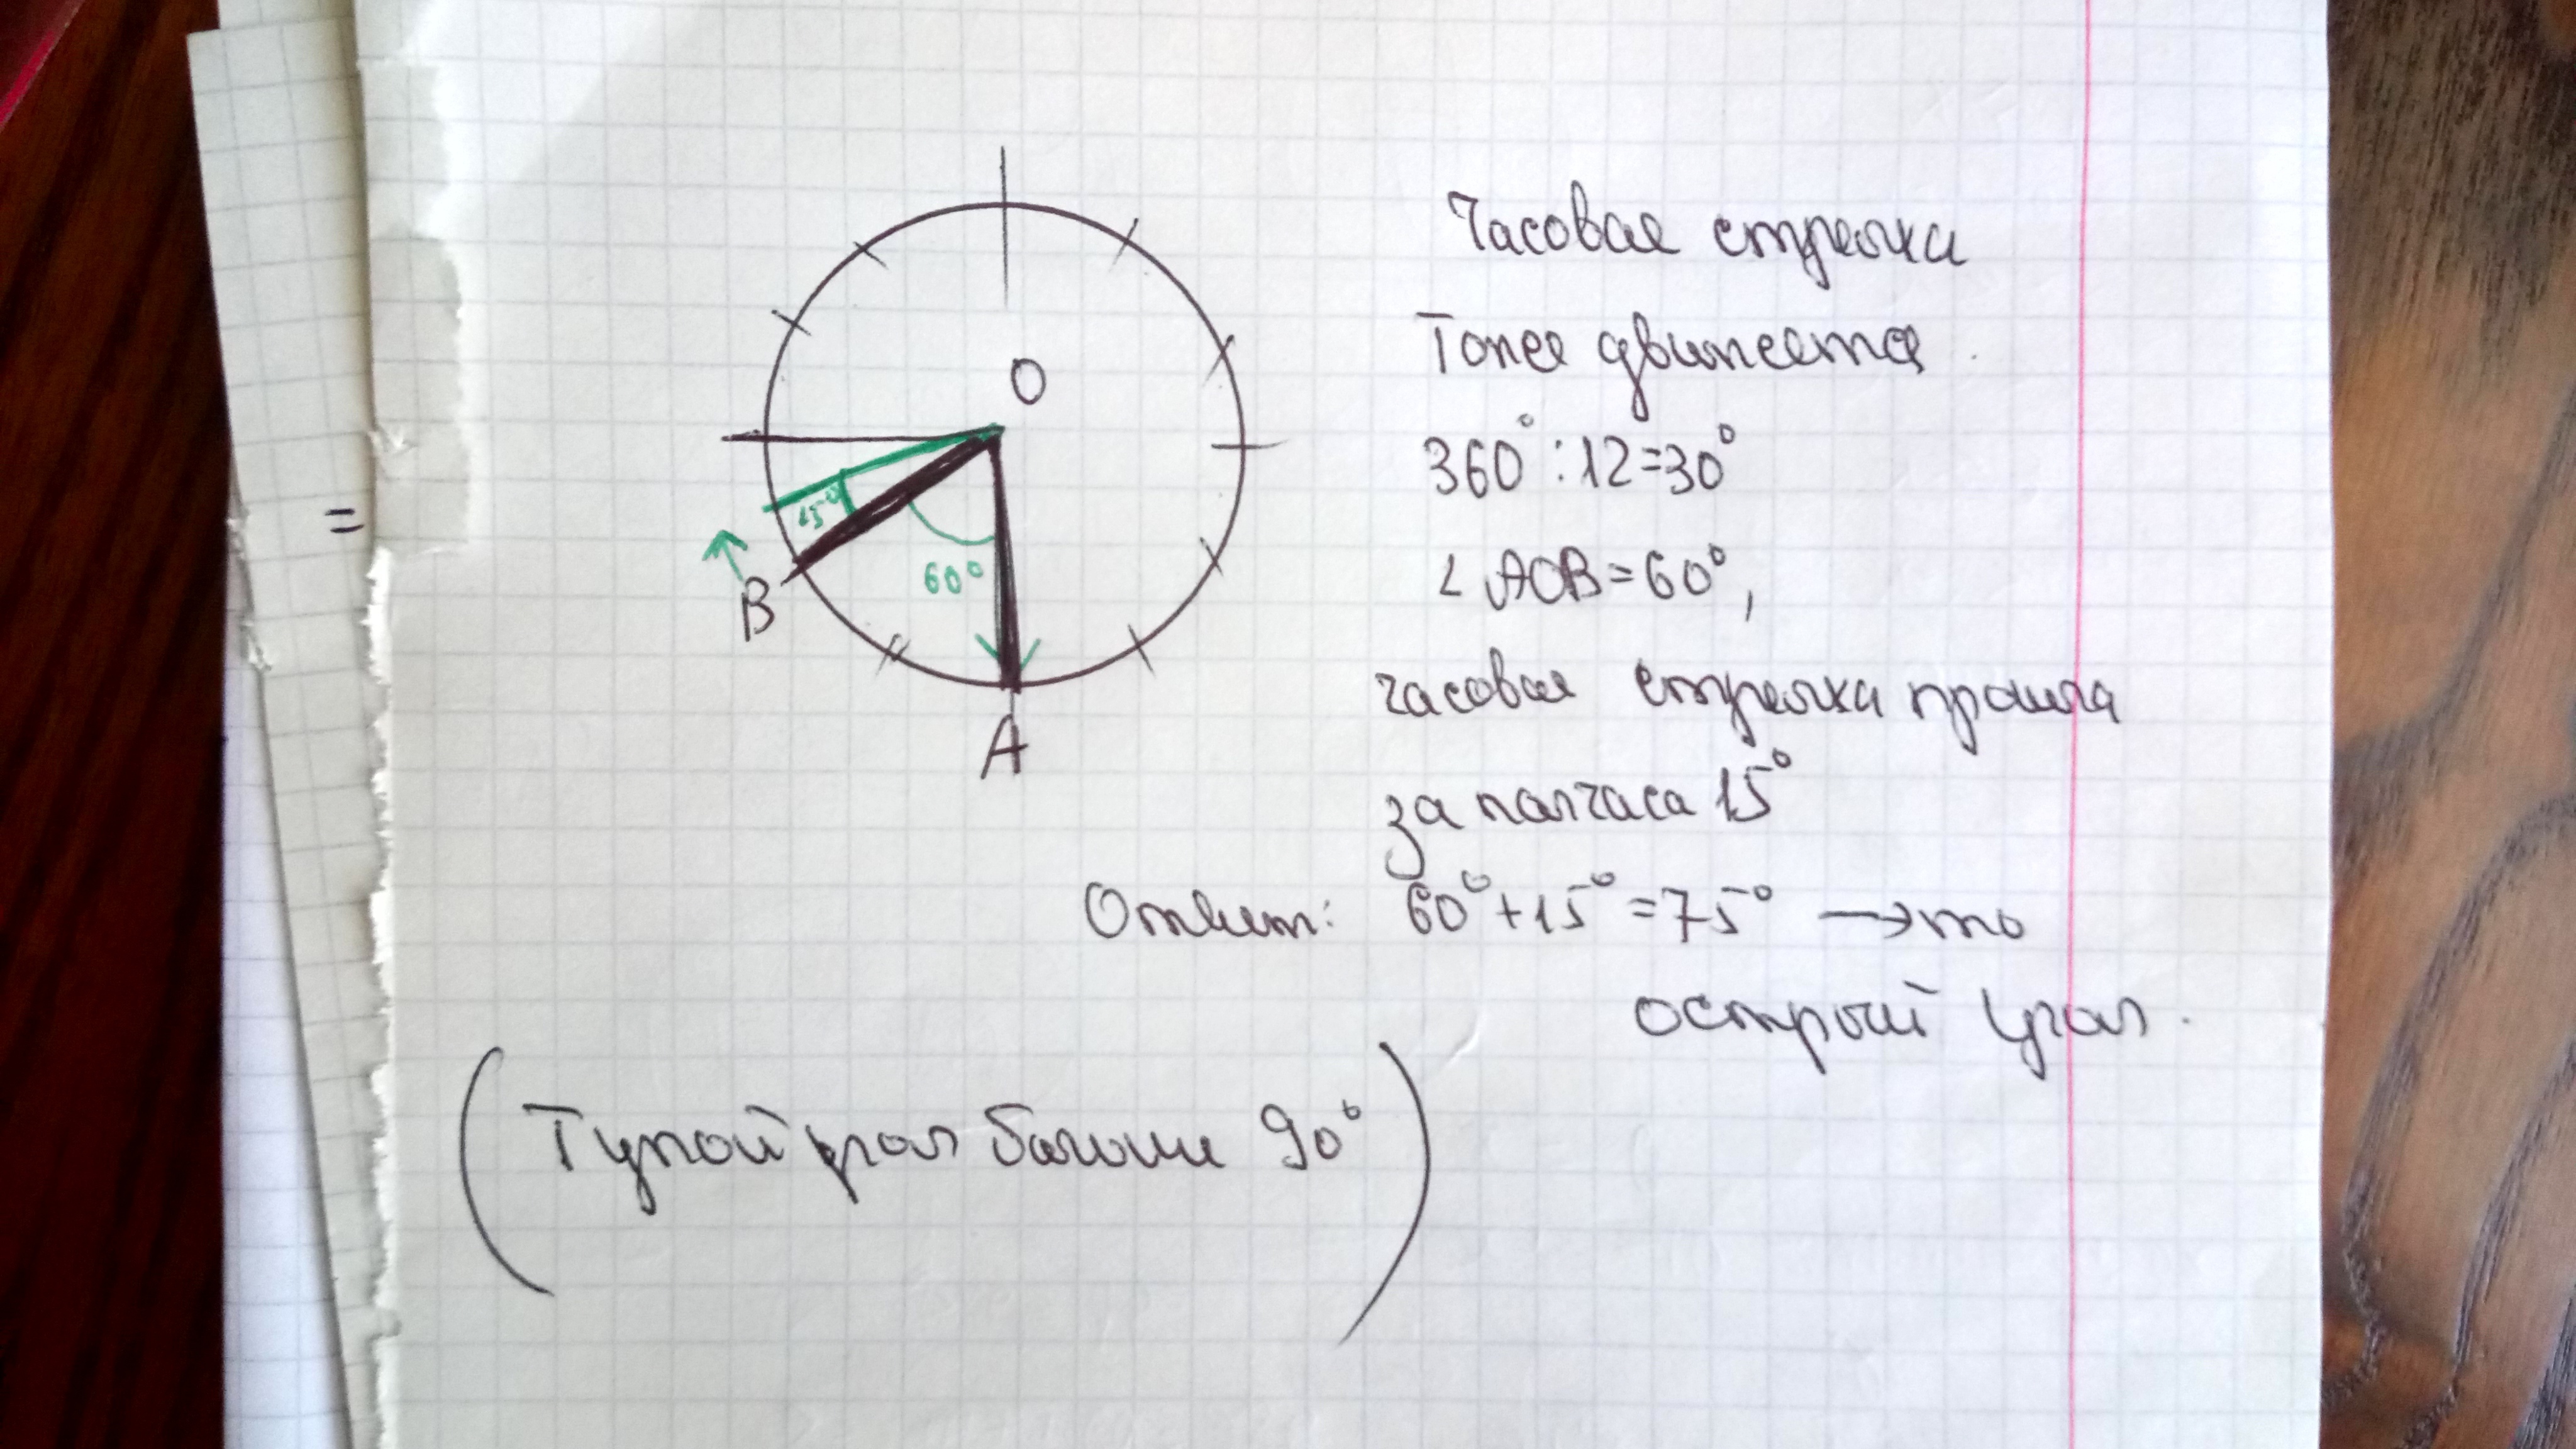 =
O
15°
60°
B
A
Часовая стрелка
Тоже движется
360° : 12 = 30°
∠ AOB = 60°,
часовая стрелка прошла
за полчаса 15°
Ответ: 60° + 15° = 75° → это
острый угол.
(Тупой угол больше 90°)